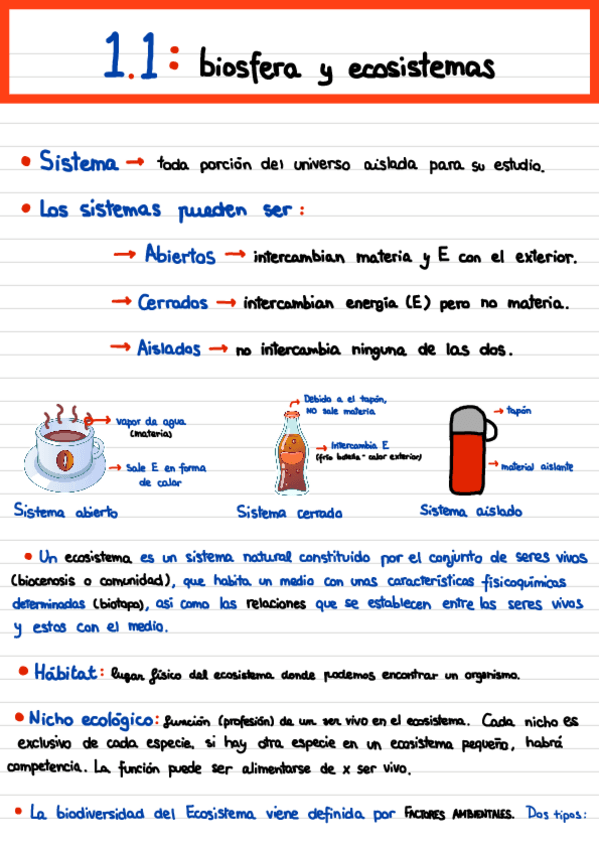 1.1: biosfera y ecosistemas
• Sistema → toda porción del universo aislada para su estudio.
• Los sistemas pueden ser:
→ Abiertos → intercambian materia y E con el exterior.
→ Cerrados → intercambian energía (E) pero no materia.
→ Aislados → no intercambia ninguna de las dos.
→ vapor de agua
(materia)
→ Sale E en forma
de calor
Sistema abierto
→ Debido a el tapón,
NO sale materia
→ Intercambia E
(frío botella - calor exterior)
Sistema cerrado
→ tapón
→ material aislante
Sistema aislado
• Un ecosistema es un sistema natural constituido por el conjunto de seres vivos
(biocenosis o comunidad), que habita un medio con unas características fisicoquímicas
determinadas (biotopo), así como las relaciones que se establecen entre los seres vivos
y estos con el medio.
• Hábitat: lugar físico del ecosistema donde podemos encontrar un organismo.
• Nicho ecológico: función (profesión) de un ser vivo en el ecosistema. Cada nicho es
exclusivo de cada especie, si hay otra especie en un ecosistema pequeño, habrá
competencia. La función puede ser alimentarse de x ser vivo.
• La biodiversidad del Ecosistema viene definida por FACTORES AMBIENTALES. Dos tipos: